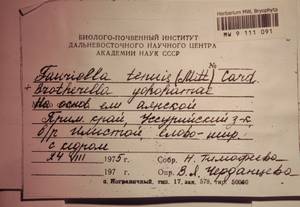 Herbarium MW, Bryophyta
MW 9 111 091
БИОЛОГО-ПОЧВЕННЫЙ ИНСТИТУТ
ДАЛЬНЕВОСТОЧНОГО НАУЧНОГО ЦЕНТРА
АКАДЕМИИ НАУК СССР
№
Fauriella tenuis (Mitt) Card
+ Brotherella yoporomae
На основ ели аянской
Прим. край, Уссурийский з-к
б/р елово-шир.
с кедром
24 VIII 1975 г. Собр. Н. Тимофеева
197 г. Опр. В.Я. Черданцева
п. Пограничный, тип. 17, зак. 579, тир. 50000